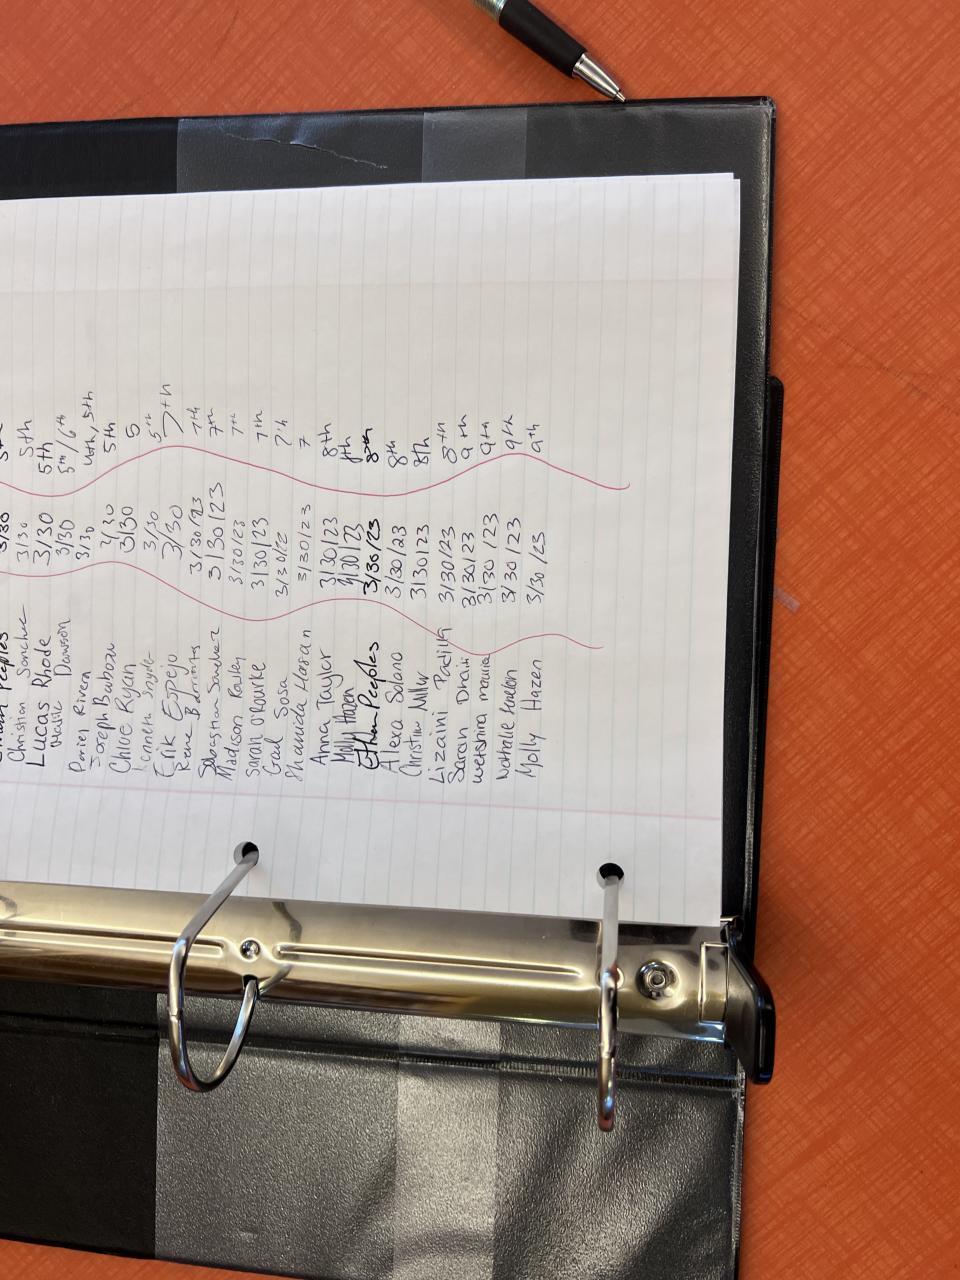 Peeples 3/30 5th
Christian 3/30 5th
Lucas Rhode 3/30 5th
Dawson 3/30 5th/6th
Rivera 3/30 4th, 5th
Joseph 3/30 5th
Chloe Ryan 3/30 5
Kenneth Snyder 3/30 5th
Erik Espejo 3/30 7th
Rene 3/30/23 7th
Sebastian Sanchez 3/30/23 7th
Madison 3/30/23 7th
Sarah O'Rourke 3/30/23 7th
Gail Sosa 3/30/23 7th
Shanida Hasan 3/30/23 7
Anna Taylor 3/30/23 8th
Molly Hazen 3/30/23 8th
Ethan Peeples 3/30/23 8th
Alexa Solano 3/30/23 8th
Christina Miller 3/30/23 8th
Lizaini Padilla 3/30/23 8th
Saron 3/30/23 9th
3/30/23 9th
Nathalie 3/30/23 9th
Molly Hazen 3/30/23 9th